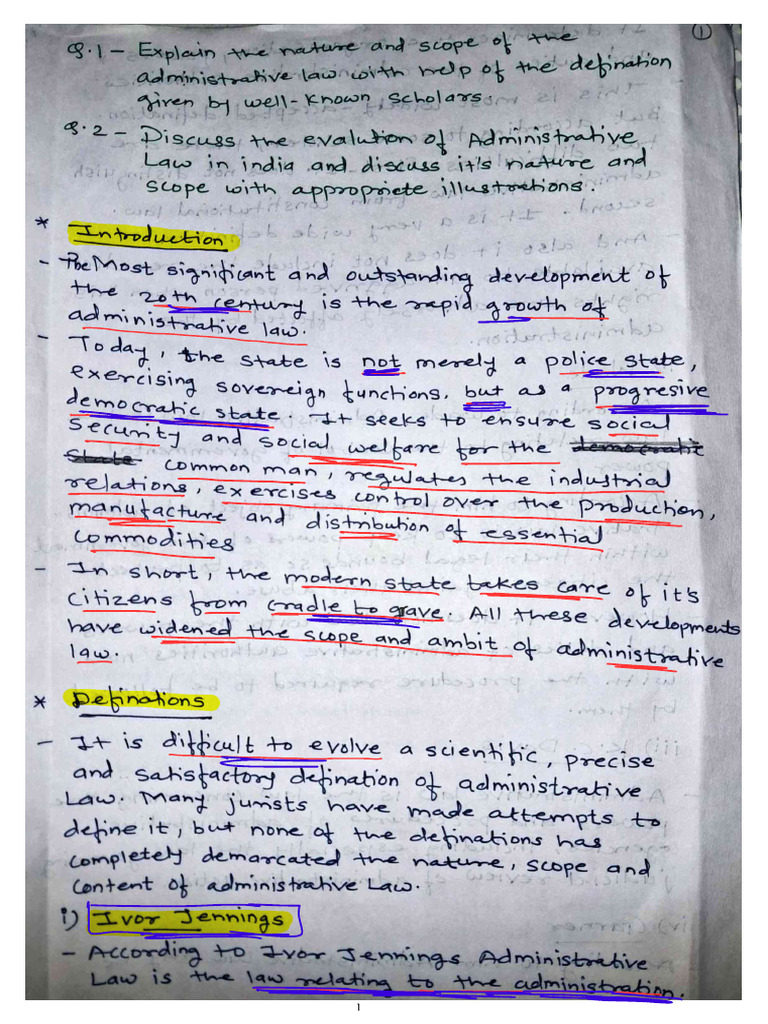 1
Q.1 - Explain the nature and scope of the
administrative law with help of the defination
given by well-known scholars.
Q.2 - Discuss the evalution of Administrative
Law in india and discuss it's nature and
scope with appropriete illustrations.
* Introduction
- The Most significant and outstanding development of
the 20th century is the rapid growth of
administrative law.
- Today, the state is not merely a police state,
exercising sovereign functions, but as a progresive
democratic state. It seeks to ensure social
security and social welfare for the democratic
state common man, regulates the industrial
relations, exercises control over the production,
manufacture and distribution of essential
commodities
- In short, the modern state takes care of it's
citizens from cradle to grave. All these developments
have widened the scope and ambit of administrative
law.
* Definations
- It is difficult to evolve a scientific, precise
and satisfactory defination of administrative
Law. Many jurists have made attempts to
define it, but none of the definations has
completely demarcated the nature, scope and
content of administrative Law.
i) Ivor Jennings
- According to Ivor Jennings Administrative
Law is the law relating to the administration.
1